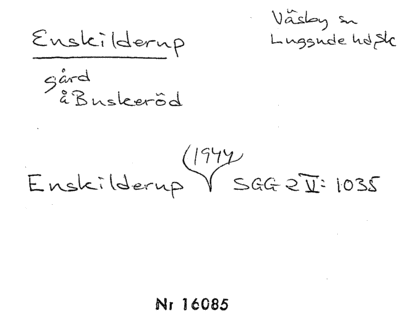 Enskilderup
Väsby sn
Luggude hd, Sk
gård
å Buskeröd
(1944)
Enskilderup SGG 2 V: 1035
Nr 16085